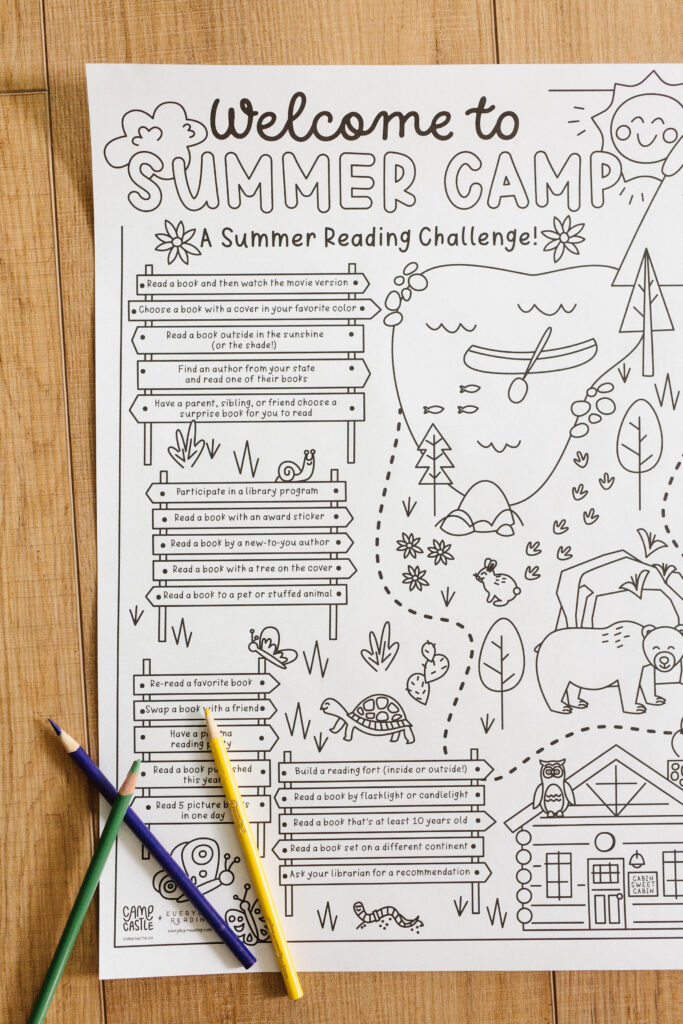 Welcome to
SUMMER CAMP
A Summer Reading Challenge!
Read a book and then watch the movie version
Choose a book with a cover in your favorite color
Read a book outside in the sunshine
(or the shade!)
Find an author from your state
and read one of their books
Have a parent, sibling, or friend choose a
surprise book for you to read
Participate in a library program
Read a book with an award sticker
Read a book by a new-to-you author
Read a book with a tree on the cover
Read a book to a pet or stuffed animal
Re-read a favorite book
Swap a book with a friend
Have a
reading
Read a book
this year
Read 5 picture
in one day
Build a reading fort (inside or outside!)
Read a book by flashlight or candlelight
Read a book that's at least 10 years old
Read a book set on a different continent
Ask your librarian for a recommendation
CABIN
SWEET
CABIN
CAMP
CASTLE
+